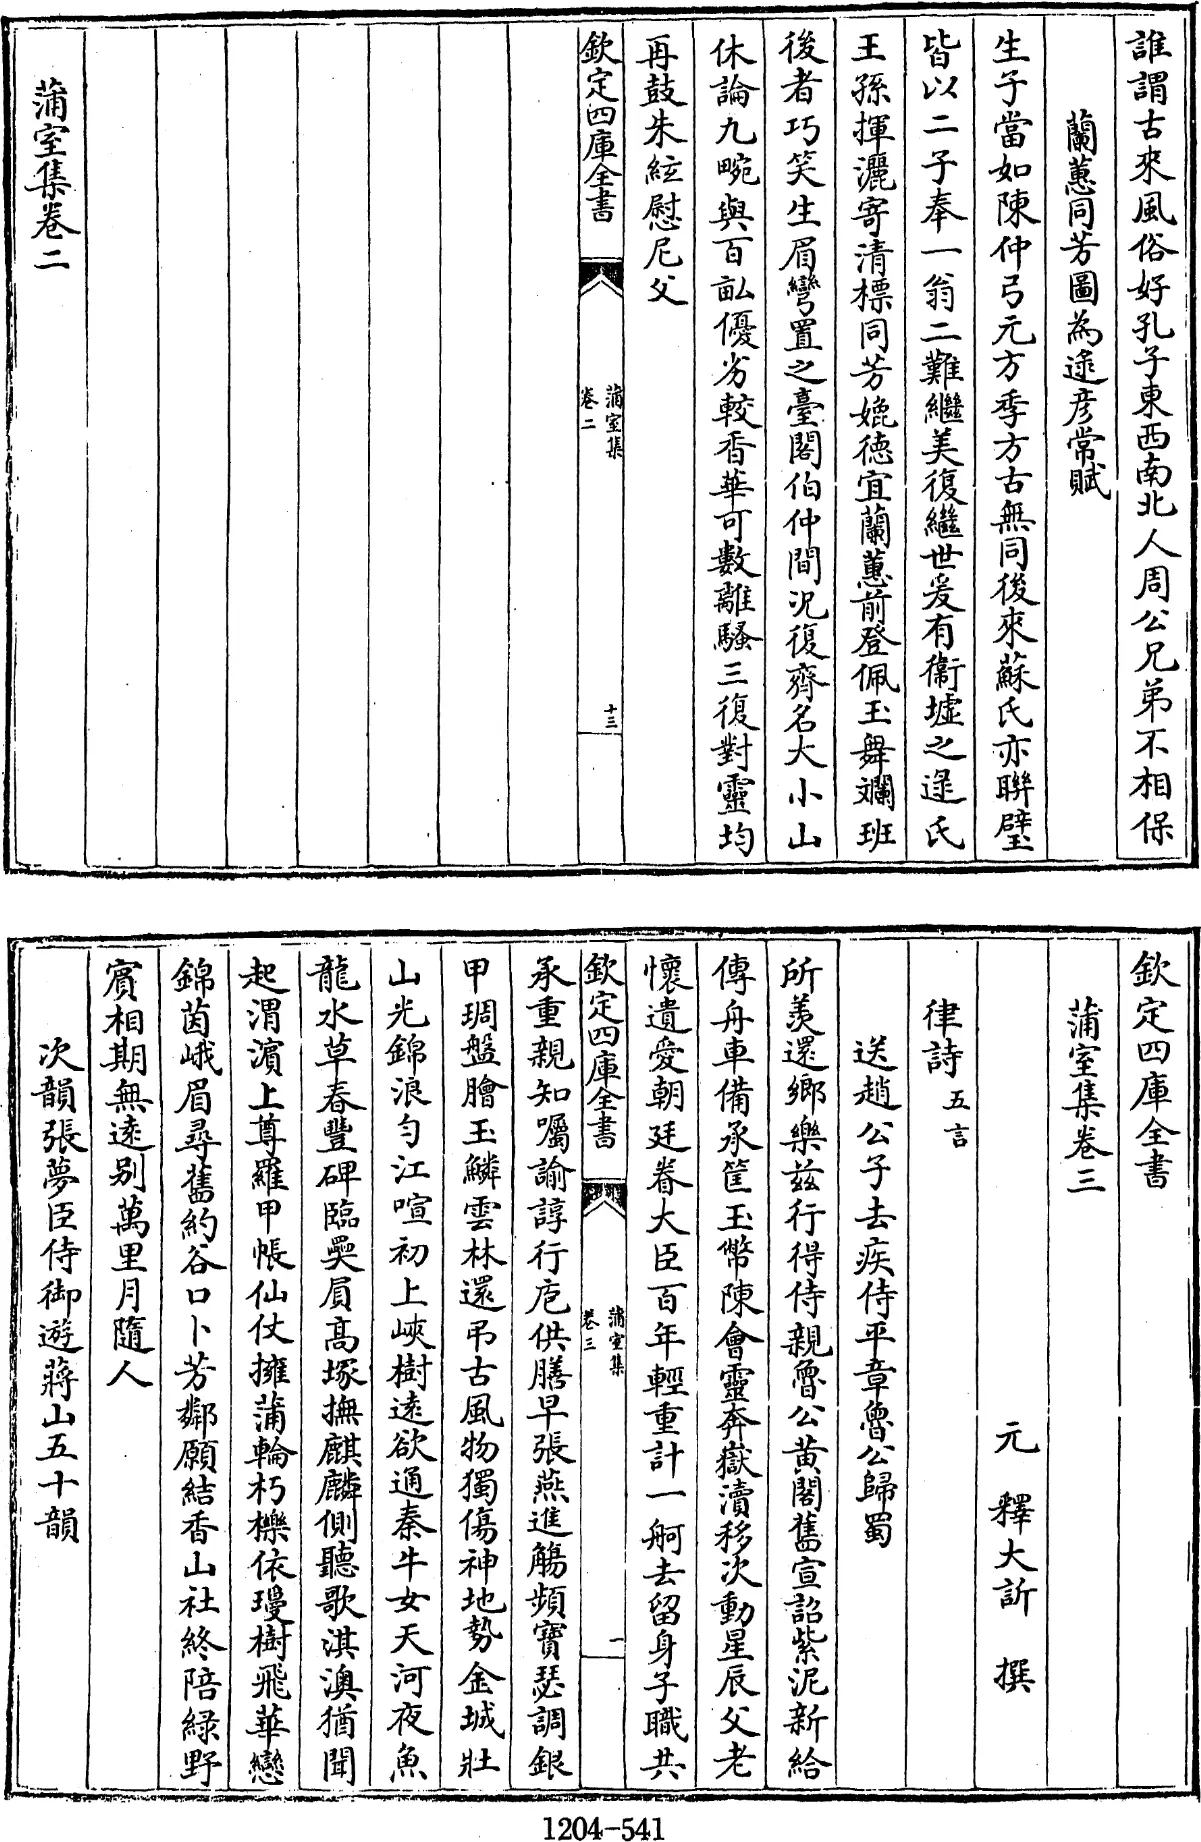 誰謂古來風俗好孔子東西南北人周公兄弟不相保
蘭蕙同芳圖為逯彥常賦
生子當如陳仲弓元方季方古無同後來蘇氏亦聯璧
皆以二子奉一翁二難繼美復繼世爰有衛墟之逯氏
王孫揮灑寄清標同芳媲德宜蘭蕙前登佩玉舞斕班
後者巧笑生眉彎置之臺閣伯仲間況復齊名大小山
休論九畹與百畝優劣較香華可數離騷三復對靈均
再鼓朱絃慰尼父
欽定四庫全書
蒲室集
卷二
十三
蒲室集卷二
欽定四庫全書
蒲室集卷三
元 釋大訢 撰
律詩 五言
送趙公子去疾侍平章魯公歸蜀
所羡還鄉樂兹行得侍親魯公黃閣舊宣詔紫泥新給
傳舟車備承筐玉幣陳會靈奔嶽瀆移次動星辰父老
懷遺愛朝廷眷大臣百年輕重計一舸去留身子職共
欽定四庫全書
蒲室集
卷三
一
承重親知囑諭諄行庖供膳早張燕進觴頻寶瑟調銀
甲琱盤膾玉鱗雲林還弔古風物獨傷神地勢金城壯
山光錦浪勻江喧初上峽樹遠欲通秦牛女天河夜魚
龍水草春豐碑臨奰屓高塚撫麒麟側聽歌淇澳猶聞
起渭濱上尊羅甲帳仙仗擁蒲輪朽櫟依瓊樹飛華戀
錦茵峨眉尋舊約谷口卜芳鄰願結香山社終陪緑野
賓相期無遠别萬里月隨人
次韻張夢臣侍御遊蔣山五十韻
1204-541